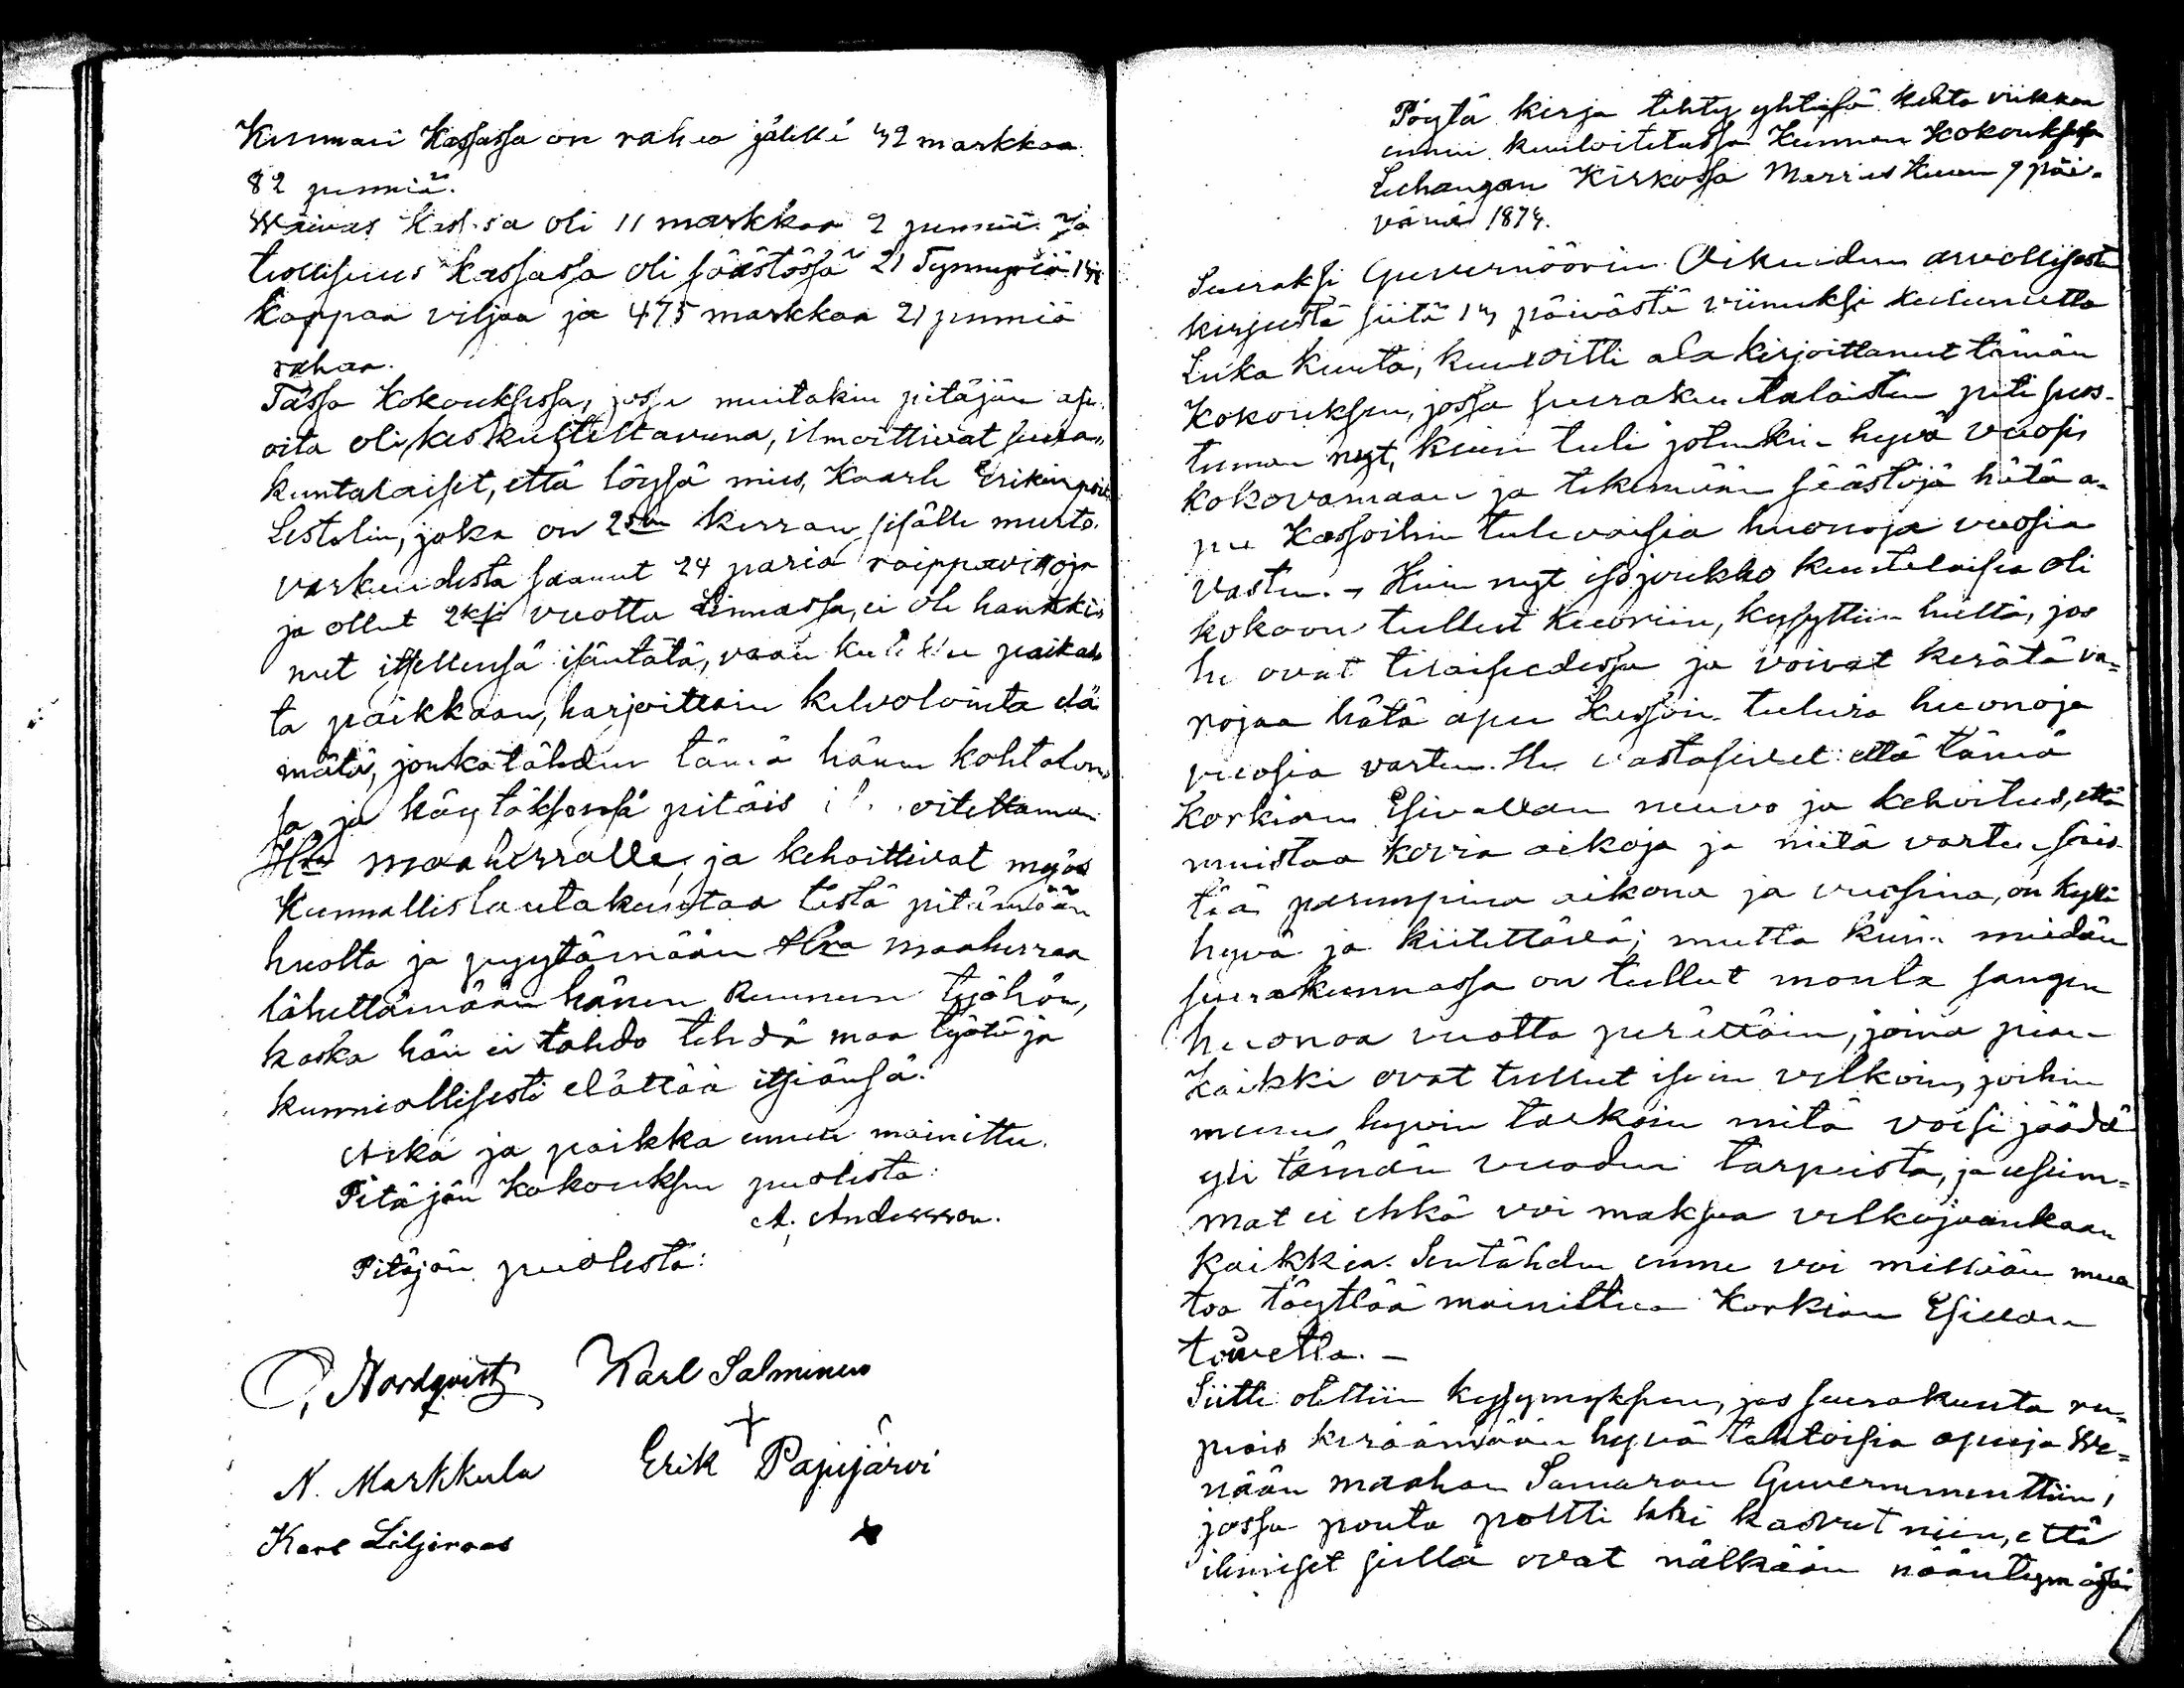 Kunnan Kassassa on rahaa jälellä 42 markkaa
82 penniä.
Waivas Kassa oli 11 markkaa 2 penniä. Ja
teollisuus kassassa oli säästössä 21 Tynnyriä 14
kappaa viljaa ja 475 markkaa 21 penniä
rahaa.
Tässä Kokouksessa, jossa muitakin pitäjän asi-
oita oli keskusteltavana, ilmoittivat seura-
kuntalaiset, että löysä mies, Kaarle Erikinpoik
Lestelin, joka on 2sen kerran sisälle murto-
varkaudesta saanut 24 paria raippavitsoja
ja ollut 2ksi vuotta Linnassa, ei ole hankki-
nut itsellensä isäntätä, vaan kulkee paikas-
ta paikkaan, harjoittain kelvotointa elä-
mätä, jonkatähden tämä hänen kohtalon-
sa ja käytöksensä pitäis oitettaman
Hra maaherralle, ja kehoittivat myös
Kunnallislautakuntaa tästä pitämään
huolta ja pyytämään Hra maaherraa
lähettämään hänen Kruunun työhön,
koska hän ei tahdo tehdä maa työtä ja
kunniallisesti elättää itsiänsä.
Aika ja paikka ennen mainittu.
Pitäjän Kokouksen puolesta:
A. Andersson.
Pitäjän puolesta:
Nordqvist Karl Salminen
N. Markkula Erik Papijärvi
Karl Liljeroos
Pöytä kirja tehty yhtesä kahta viikkoa
ennen kuuloitetussa Kunnan Kokouksessa
Luhangan Kirkossa Marras kuun 9 päi-
vänä 1874.
Seuraksi Guvernöörin Oikeuden arvollisesta
kirjeestä siitä 14 päivästä viimeksi kulunutta
Loka Kuuta, kuuloitti ala kirjoittanut tämän
Kokouksen, jossa seurakuntalaisten piti suos-
tuman nyt, kuin tuli jotenkin hyvä vuosi
kokovamaan ja tekemään säästöjä hätä a-
pu Kassoihin tulevaisia huonoja vuosia
vasten. – Kuin nyt iso joukko kuntalaisia oli
kokoon tullut Kuoriin, kysyttiin heiltä, jos
he ovat tilaisudessa ja voivat kerätä va-
rojaa hätä apu Kassoin tulevia huonoja
vuosia varten. He vastasivat: että tämä
Korkian Esivallan neuvo ja kehoitus, että
muistaa kovia aikoja ja niitä varten sääs-
tää parempina aikona ja vuosina, on kyllä
hyvä ja kiitettävä; mutta kuin meidän
seurakunnassa on tullut monta sangen
huonoa vuotta perättäin, joina pian
kaikki ovat tulleet isoin velkoin, joihin
menee hyvin tarkoin mitä voisi jäädä
yli tämän vuoden tarpeista, ja useim-
mat ei ehkä voi maksaa velkojaankaan
kaikkia. Sentähden emme voi millään muo-
toa täyttää mainittua Korkian Esivallan
toivetta. –
Siitte otettiin kysymykseen, jos seurakunta ru-
peis keräämään hyvä tahtoisia apuja We-
nään maahan Samaran Guvernementtiin,
jossa pouta poltti laki kasvut niin, että
ihmiset siellä ovat nälkään nääntymäisä